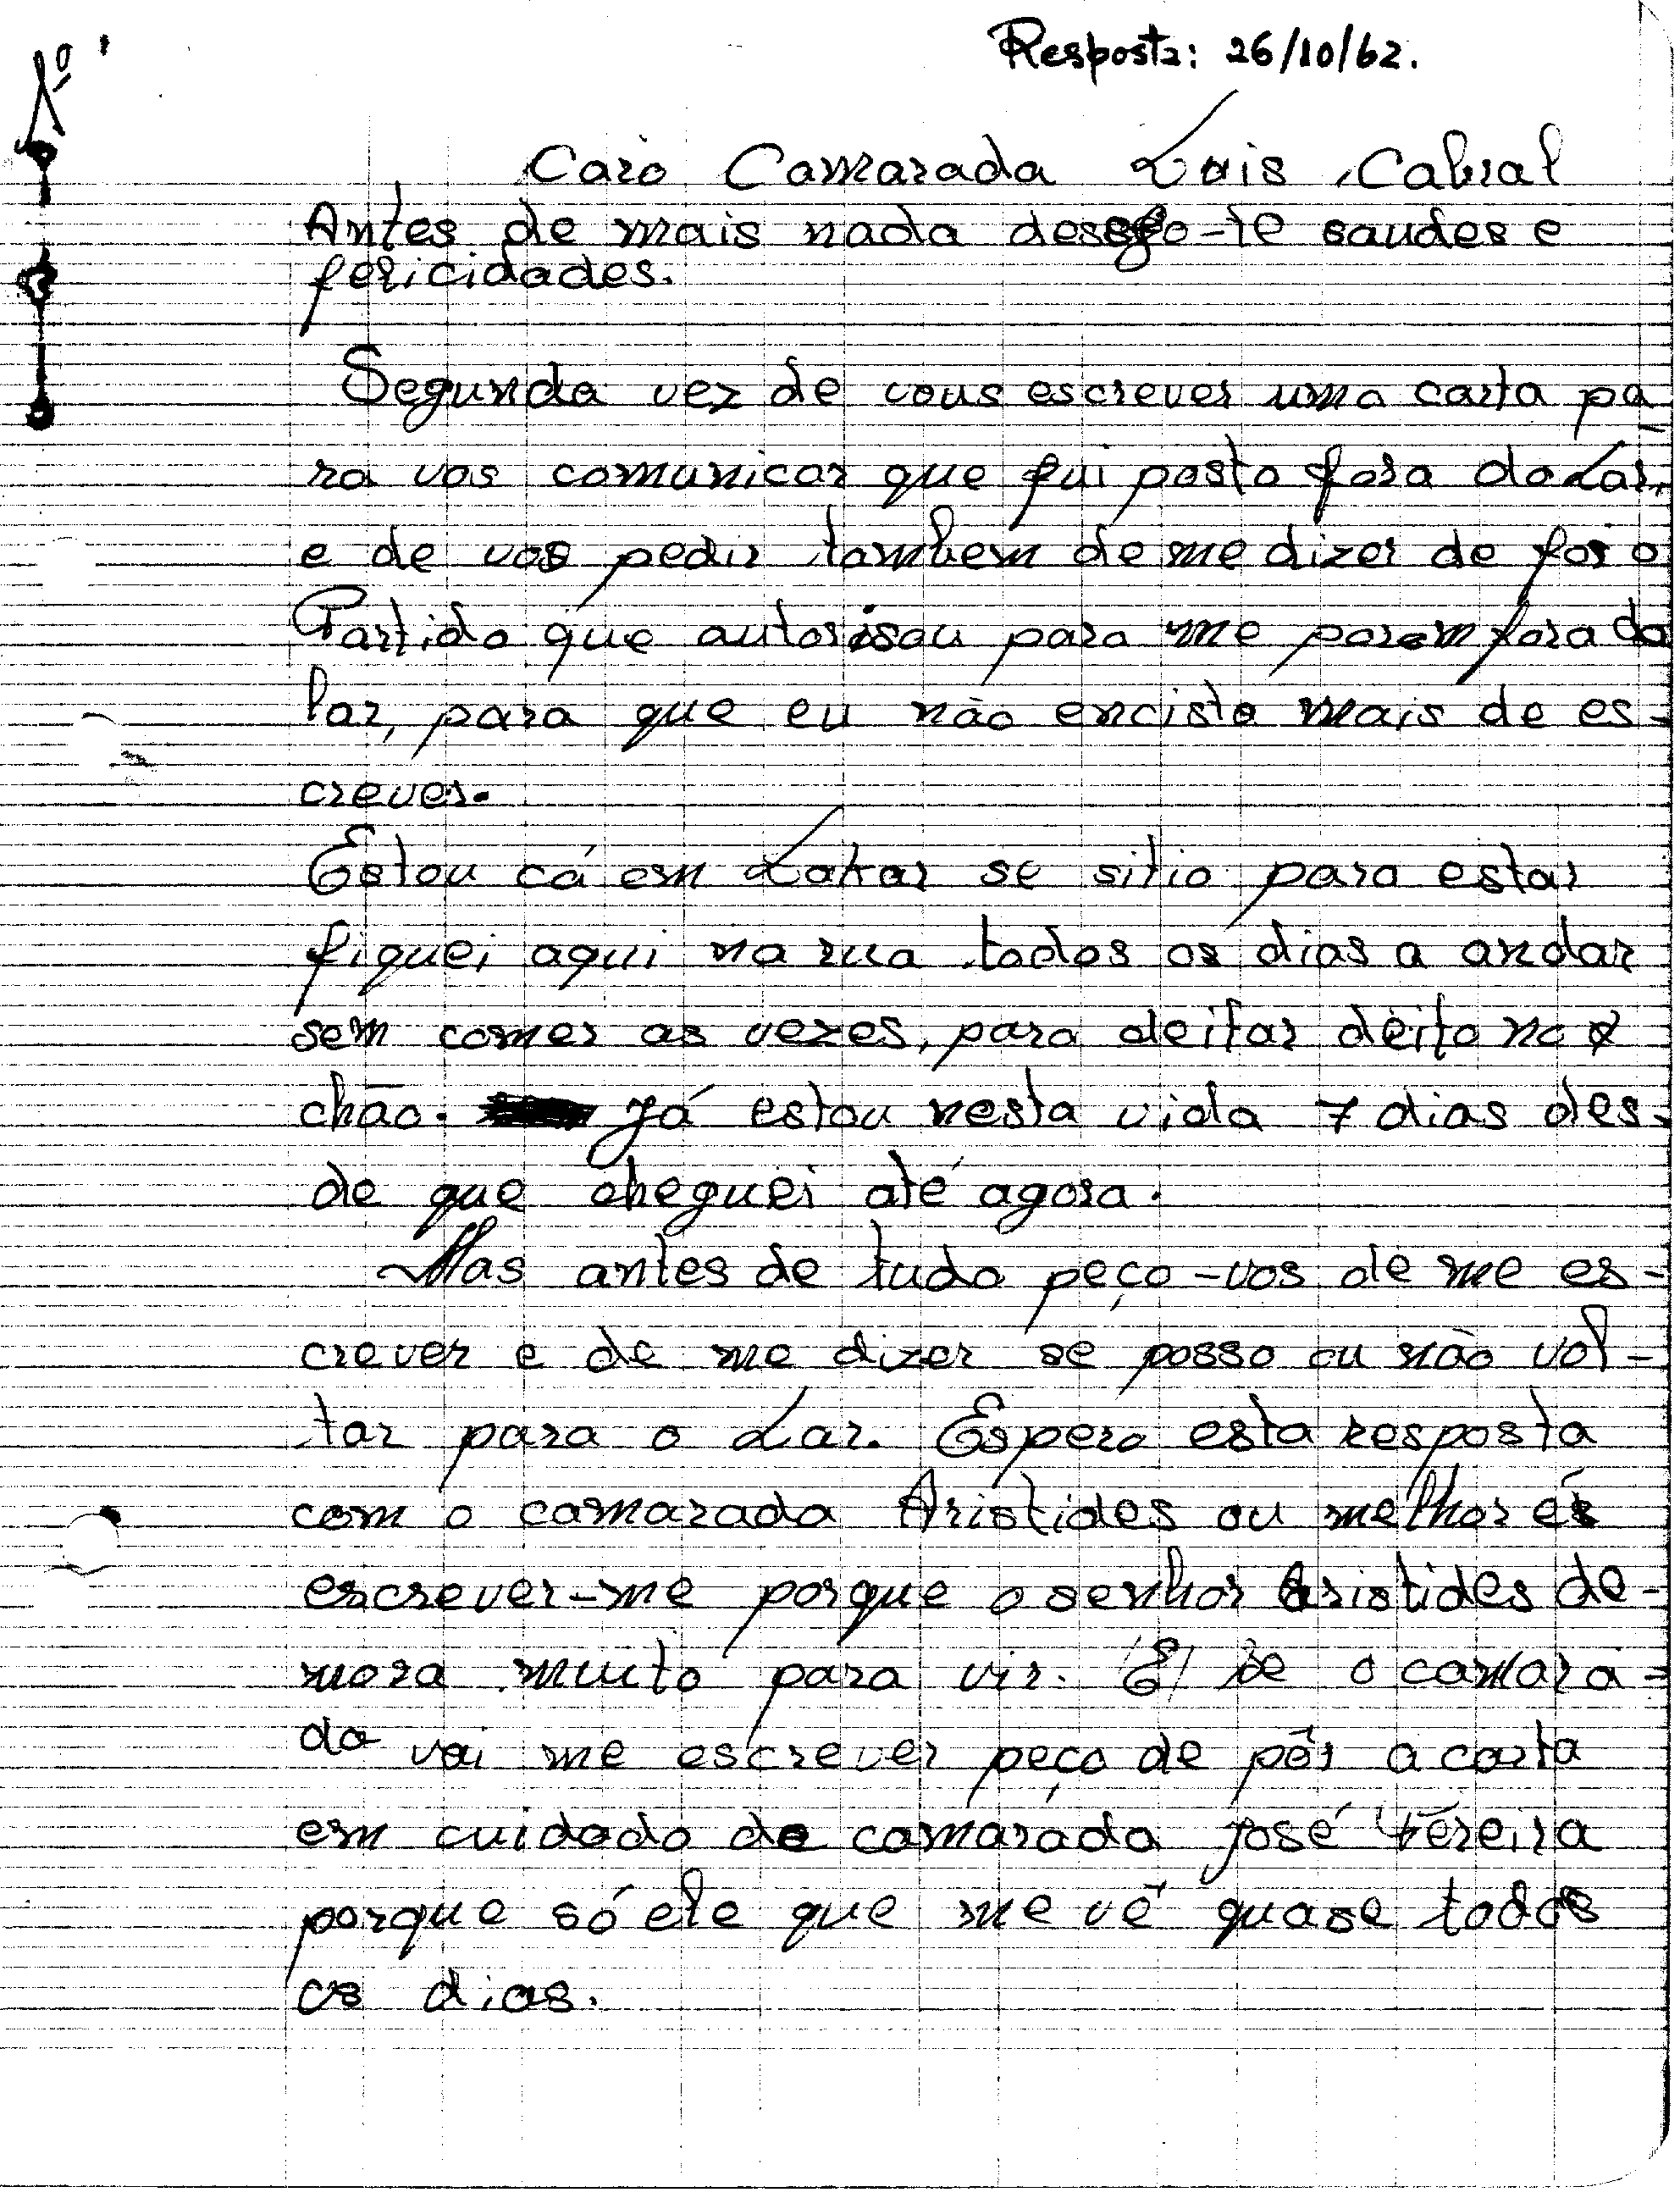 Resposta: 26/10/62.
Caro Camarada Luis Cabral
Antes de mais nada desejo-te saudes e
felicidades.
Segunda vez de vous escrever uma carta pa
ra vos comunicar que fui posto fora do Lar,
e de vos pedir tambem de me dizer de foi o
Partido que autorisou para me porem fora do
lar, para que eu não encisto mais de es-
crever.
Estou cá em Dakar se sitio para estar
fiquei aqui na rua todos os dias a andar
sem comer as vezes, para deitar deito no
chão. Já estou nesta vida 7 dias des-
de que cheguei até agora.
Mas antes de tudo peço-vos de me es-
crever e de me dizer se posso ou não vol-
tar para o Lar. Espero esta resposta
com o camarada Aristides ou melhor é
escrever-me porque o senhor Aristides de-
mora muito para vir. E se o camara-
da vai me escrever peço de pôr a carta
em cuidado do camarada José Pereira
porque só ele que me vê quase todos
os dias.